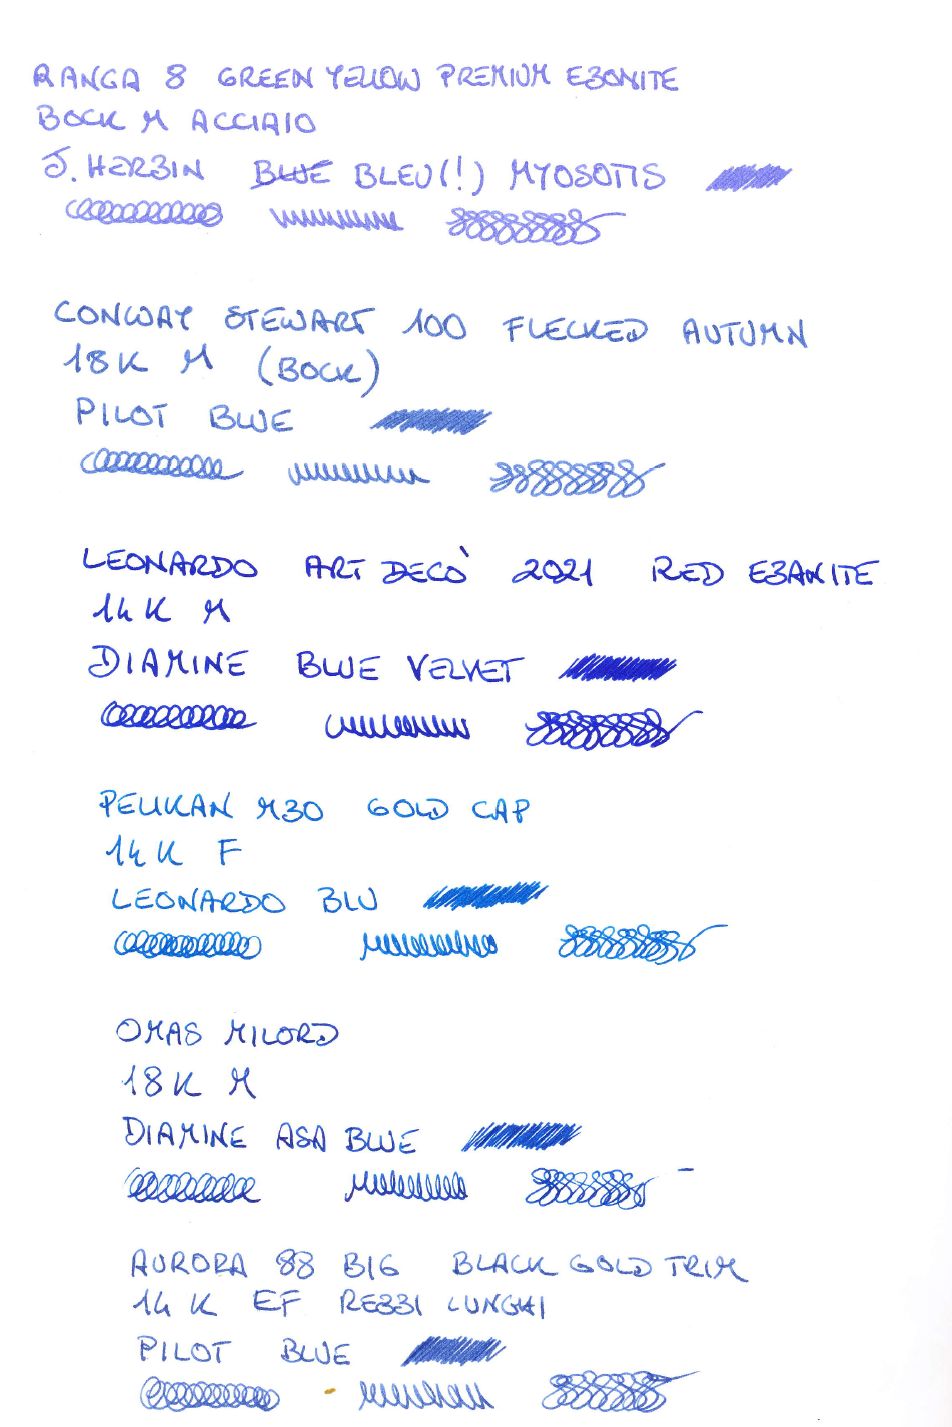 RANGA 8 GREEN YELLOW PREMIUM EBONITE
BOCK M ACCIAIO
J. HERBIN BLUE BLEU(!) MYOSOTIS
CONWAY STEWART 100 FLECKED AUTUMN
18K M (BOCK)
PILOT BLUE
LEONARDO ART DECÒ 2021 RED EBANITE
14K M
DIAMINE BLUE VELVET
PELIKAN M30 GOLD CAP
14K F
LEONARDO BLU
OMAS MILORD
18K M
DIAMINE ASA BLUE
AURORA 88 BIG BLACK GOLD TRIM
14K EF REBBI LUNGHI
PILOT BLUE